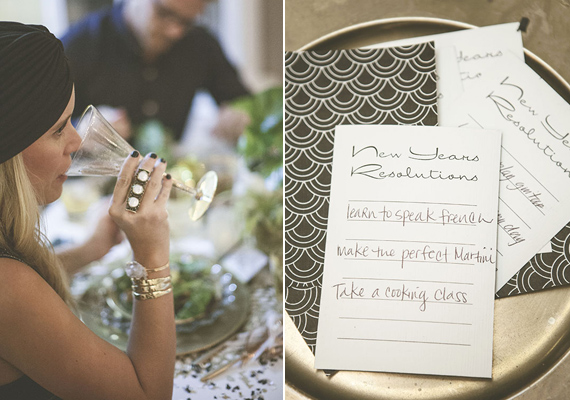 New Years
Resolutions
learn to speak french
make the perfect Martini
Take a cooking class
New Years
Resolutions
day
Years